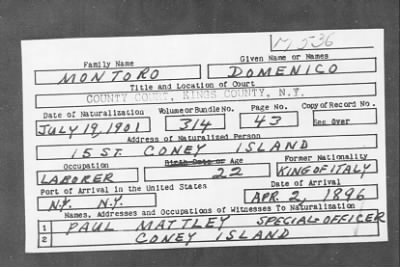 M 536
Family Name Given Name or Names
MONTORO DOMENICO
Title and Location of Court
COUNTY COURT, KINGS COUNTY, N.Y.
Date of Naturalization Volume or Bundle No. Page No. Copy of Record No.
JULY 19, 1901 314 43 See Over
Address of Naturalized Person
15 ST. CONEY ISLAND
Occupation Birth Date or Age Former Nationality
LABORER 22 KING OF ITALY
Port of Arrival in the United States Date of Arrival
N.Y. N.Y. APR. 2, 1896
Names, Addresses and Occupations of Witnesses To Naturalization
1 PAUL MATTLEY SPECIAL OFFICER
2 CONEY ISLAND